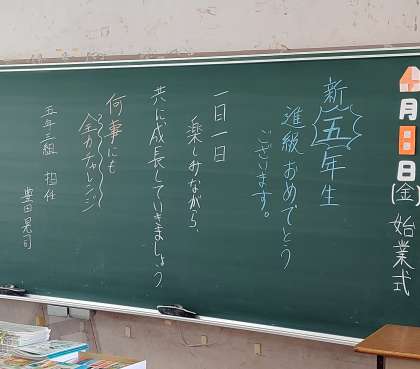 4月8日(金)始業式
新五年生
進級おめでとう
ございます。
一日一日
楽しみながら、
共に成長していきましょう
何事にも
全力チャレンジ
五年三組 担任
豊田晃司